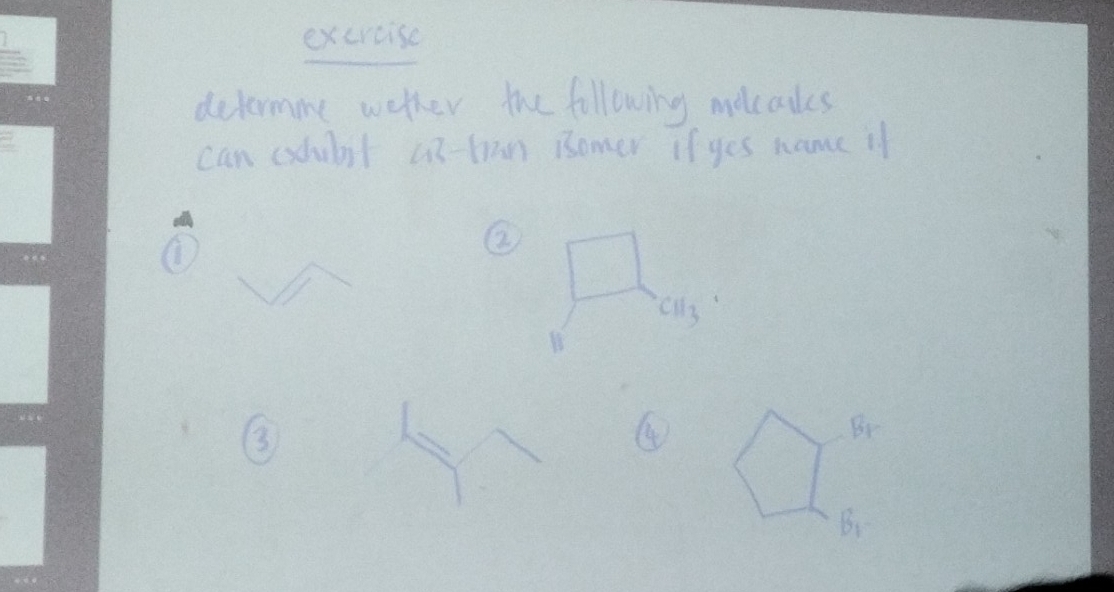 exercise
determine wether the following molecules
can exhibit cis-tran isomer if yes name it
①
②
CH3
③
④
Br
Br